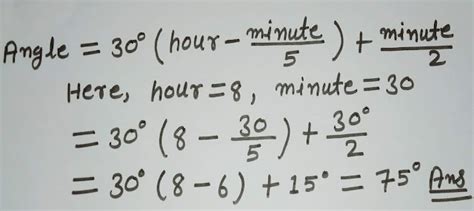 Angle = 30° (hour - minute/5) + minute/2
Here, hour = 8, minute = 30
= 30° (8 - 30/5) + 30°/2
= 30° (8 - 6) + 15° = 75° Ans